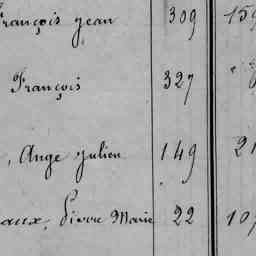 François jean 309 159
François 327
, Ange Julien 149 21
aux, Pierre Marie 22 107